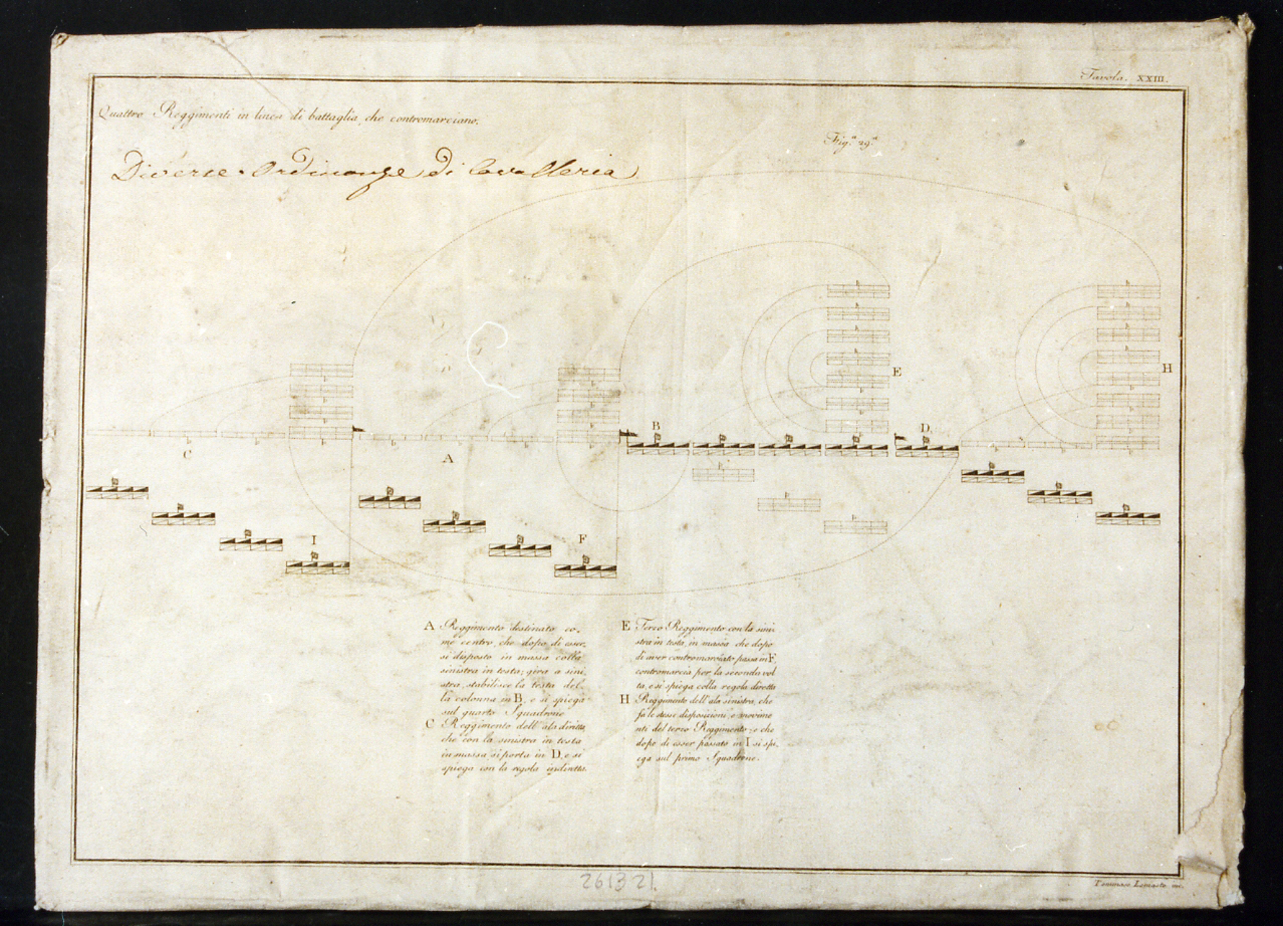 Tavola. XXIII.
Quattro Reggimenti in linea di battaglia che contromarciano.
Fig.ª 29ª
Diverse Ordinanze di Cavalleria
E
H
B
D
C
A
I
F
A Reggimento destinato co-
me centro, che dopo di esser,
si disposto in massa colla
sinistra in testa; gira a sini,
stra, stabilisce la testa del-
la colonna in B, e si spiega
sul quarto Squadrone
C Reggimento dell'ala diritta
che con la sinistra in testa
in massa si porta in D, e si
spiega con la regola indiretta.
E Terzo Reggimento con la sini
stra in testa in massa che dopo
di aver contromarciato passa in F,
contromarcia per la seconda vol
ta, e si spiega colla regola diretta
H Reggimento dell'ala sinistra, che
fa le stesse disposizioni, e movime
nti del terzo Reggimento; e che
dopo di esser passato in I si spi,
ega sul primo Squadrone.
261321
Tommaso inc.